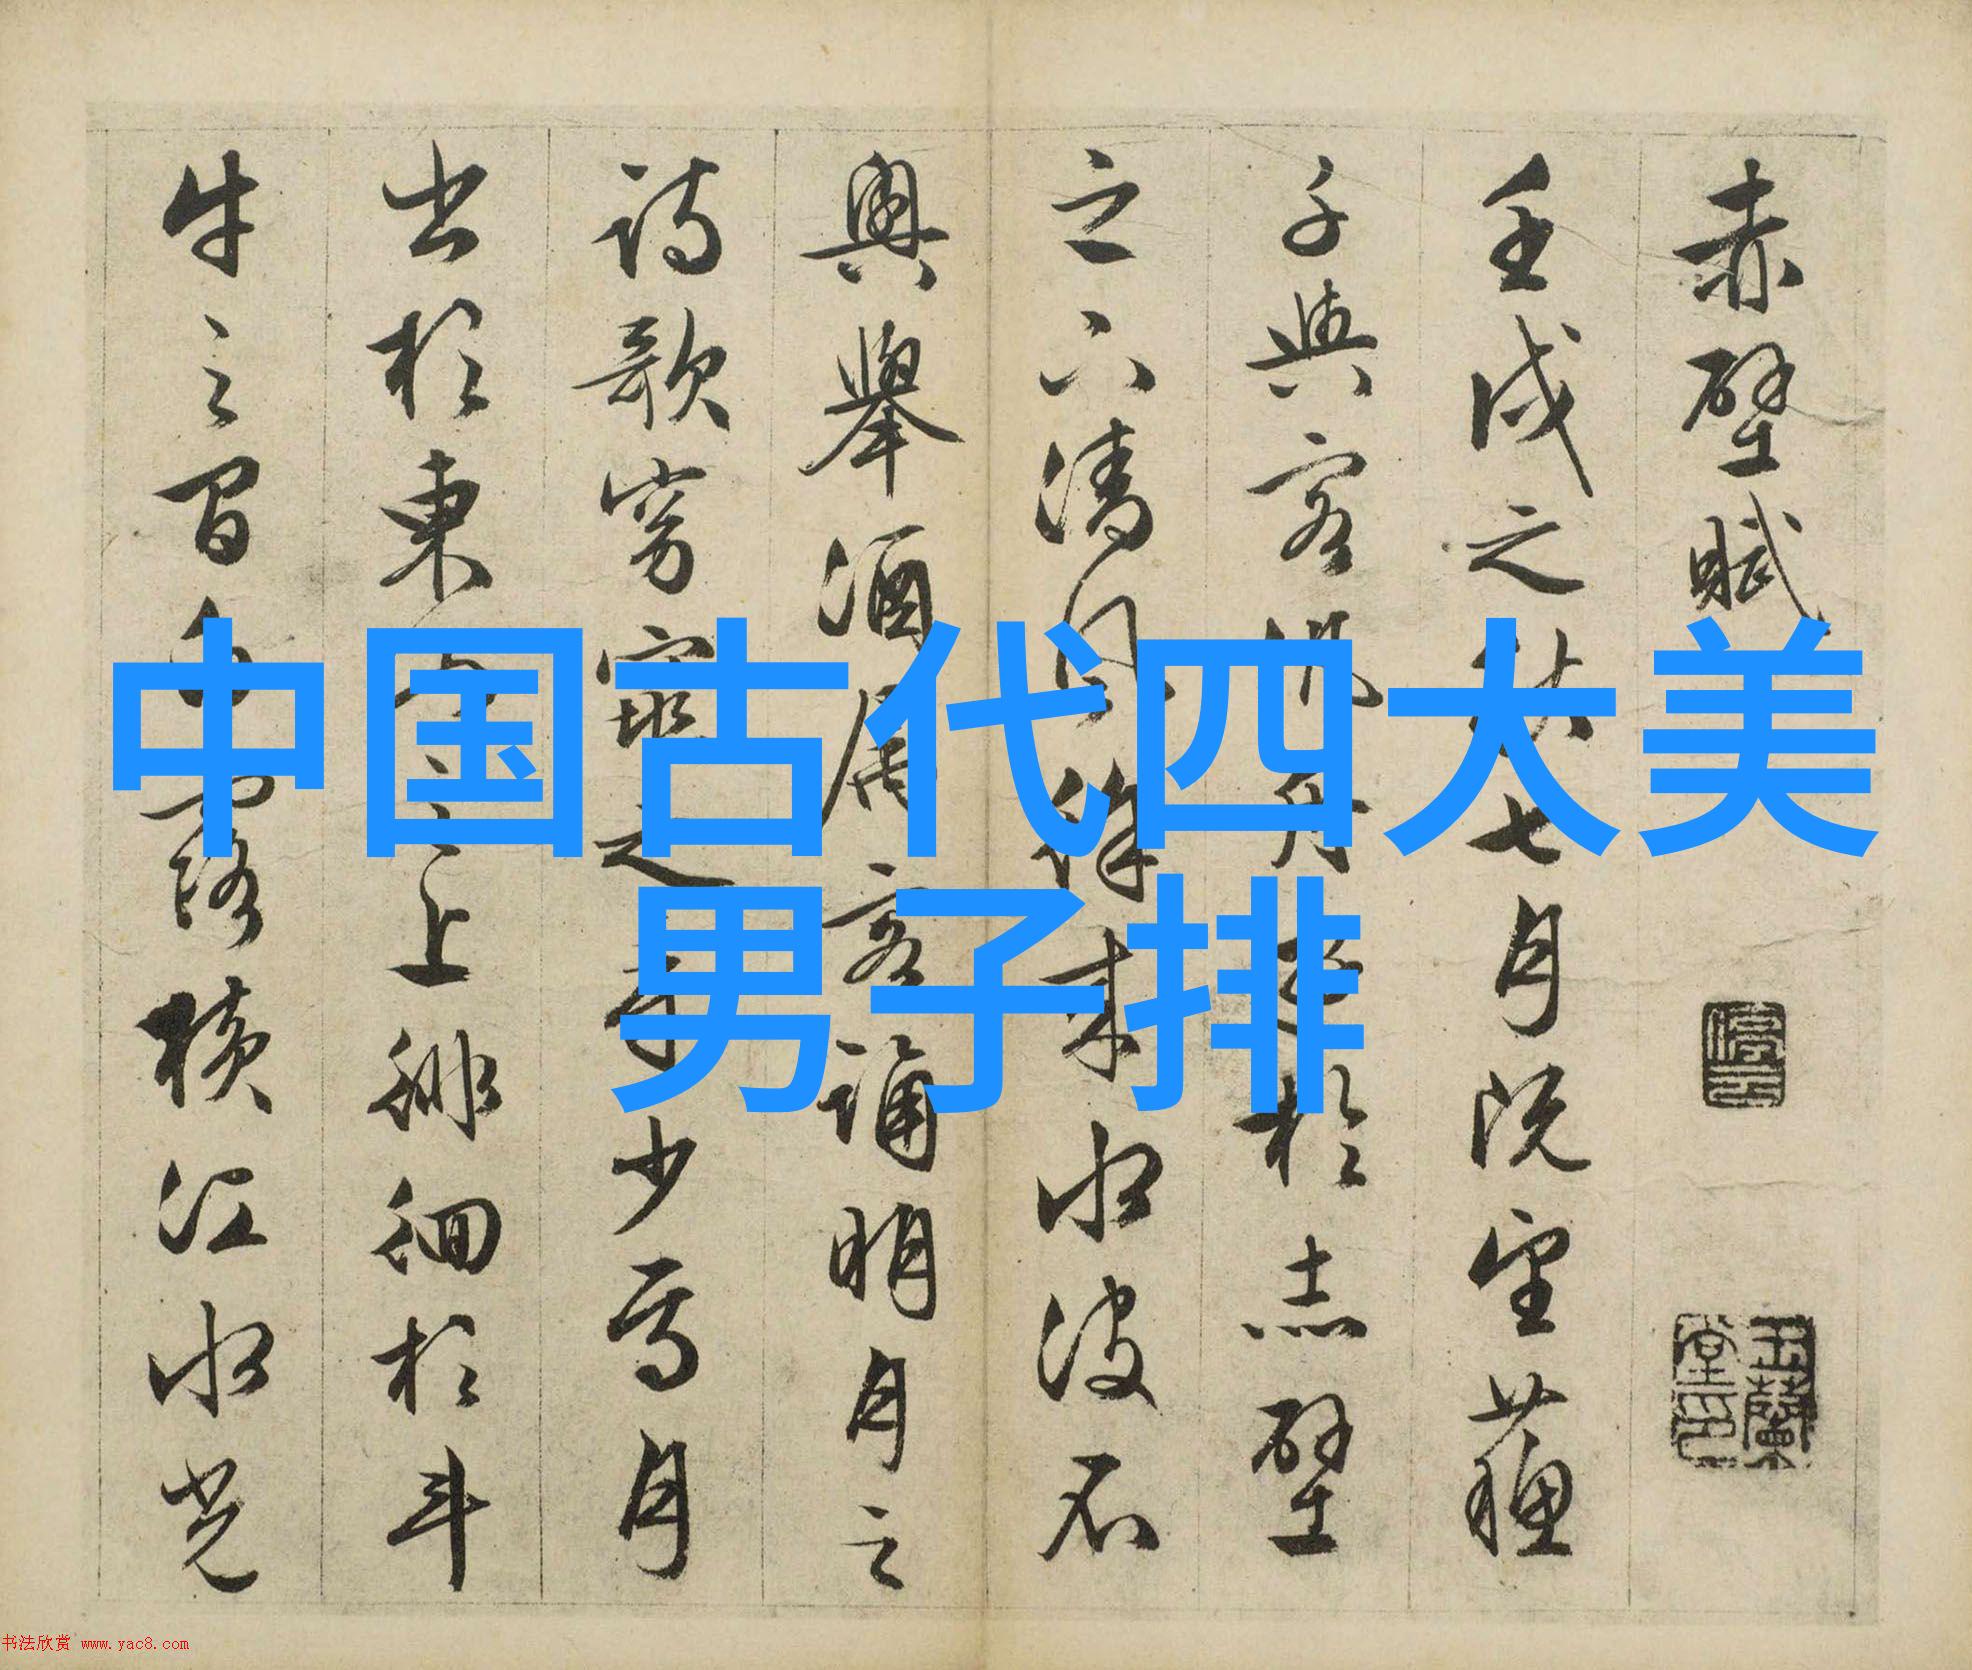 赤壁賦
停云
玉蘭堂印
壬戌之秋七月既望蘇
子與客汎舟遊於赤壁
之下清風徐來水波不
興舉酒屬客誦明月之
詩歌窈窕之章少焉月
出於東山之上徘徊於斗
牛之間白露橫江水光
中国古代四大美
男子排
书法欣赏 www.yac8.com